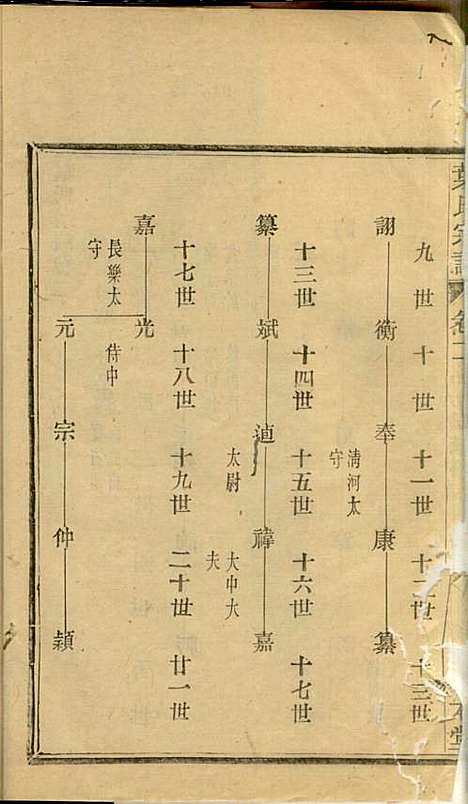 葉氏宗譜 卷二
九世 十世 十一世 十二世 十三世
詡 衡 奉 康 纂
清河太守
十三世 十四世 十五世 十六世 十七世
纂 斌 逌 禕 嘉
太尉
大中大夫
十七世 十八世 十九世 二十世 廿一世
嘉 光
長樂太守
侍中
元 宗 仲 穎